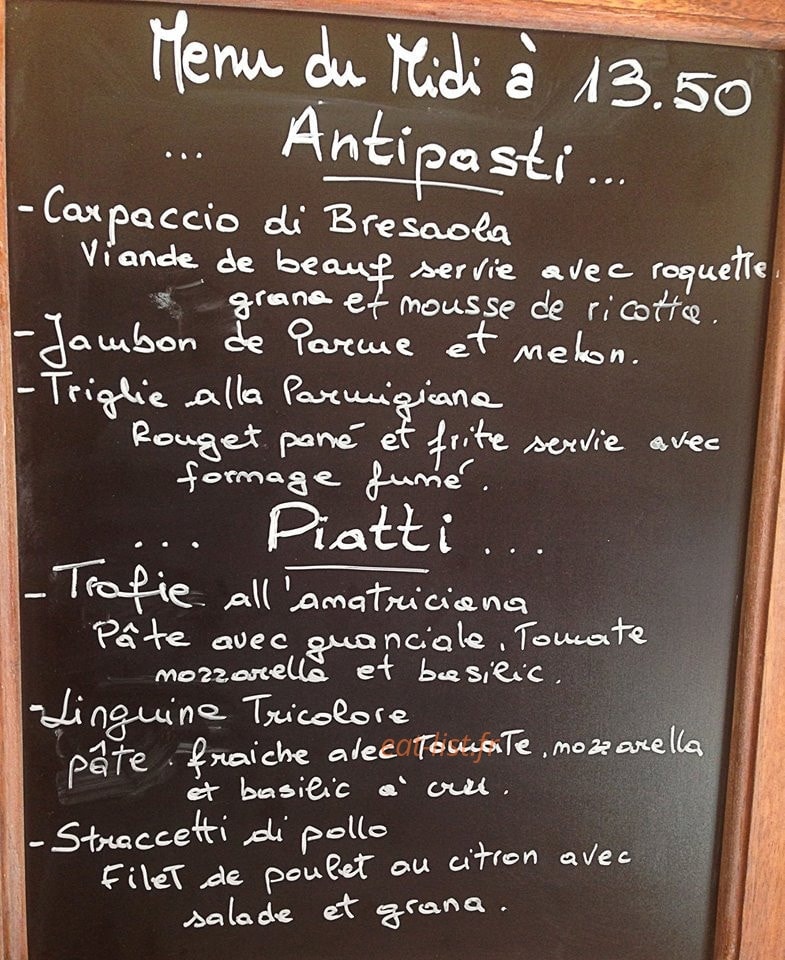 Menu du Midi à 13.50
... Antipasti ...
- Carpaccio di Bresaola
Viande de beauf servie avec roquette,
grana et mousse de ricotta.
- Jambon de Parme et melon.
- Triglie alla Parmigiana
Rouget pané et frite servie avec
formage fumé.
... Piatti ...
- Trofie all'amatriciana
Pâte avec guanciale, Tomate
mozzarella et basilic.
- Linguine Tricolore
pâte fraiche avec Tomate, mozzarella
et basilic à cru.
- Straccetti di pollo
Filet de poulet au citron avec
salade et grana.
eat-list.fr